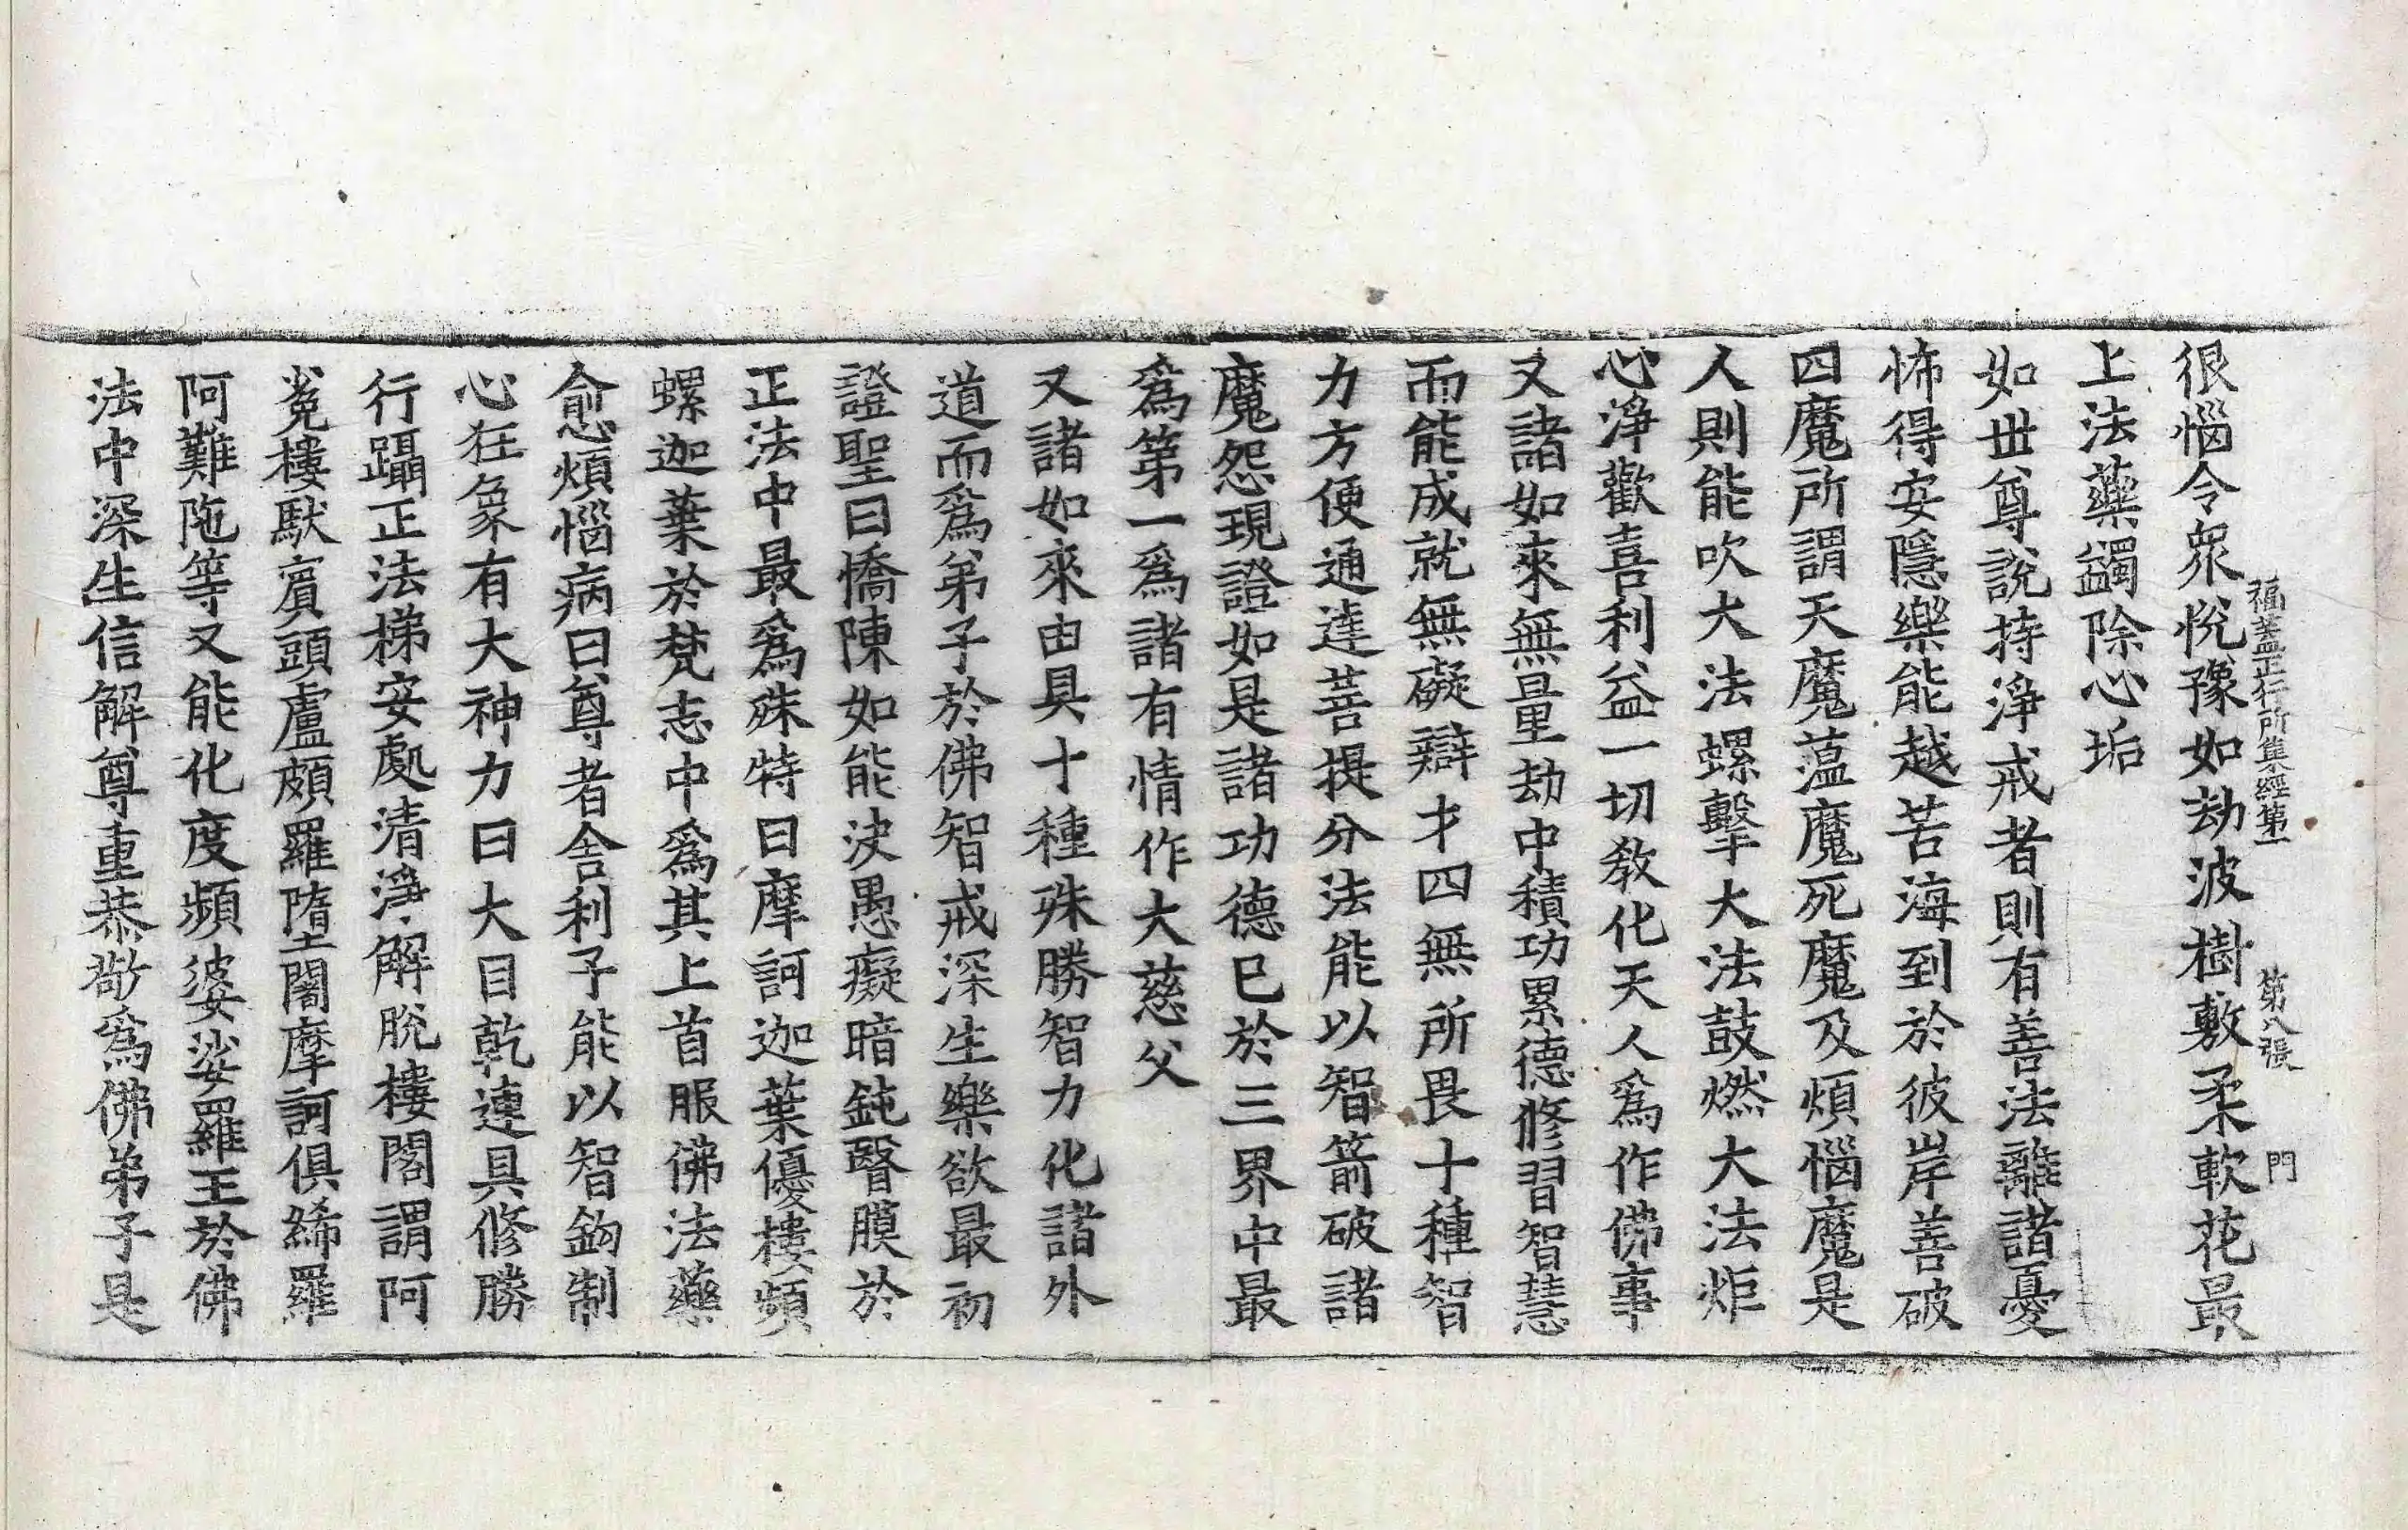 福蓋正行所集經第一 第八張 門
很惱令衆悅豫如劫波樹敷柔軟花最
上法藥蠲除心垢
如世尊說持淨戒者則有善法離諸憂
怖得安隱樂能越苦海到於彼岸善破
四魔所謂天魔蘊魔死魔及煩惱魔是
人則能吹大法螺擊大法鼓燃大法炬
心淨歡喜利益一切教化天人爲作佛事
又諸如來無量劫中積功累德修習智慧
而能成就無礙辯才四無所畏十種智
力方便通達菩提分法能以智箭破諸
魔怨現證如是諸功德已於三界中最
爲第一爲諸有情作大慈父
又諸如來由具十種殊勝智力化諸外
道而爲弟子於佛智戒深生樂欲最初
證聖曰憍陳如能決愚癡暗鈍瞖膜於
正法中最爲殊特曰摩訶迦葉優樓頻
螺迦葉於梵志中爲其上首服佛法藥
愈煩惱病曰尊者舍利子能以智鉤制
心狂象有大神力曰大目乾連具修勝
行躡正法梯安處清淨解脫樓閣謂阿
㝹樓馱賓頭盧頗羅墮闍摩訶俱絺羅
阿難陁等又能化度頻婆娑羅王於佛
法中深生信解尊重恭敬爲佛弟子是